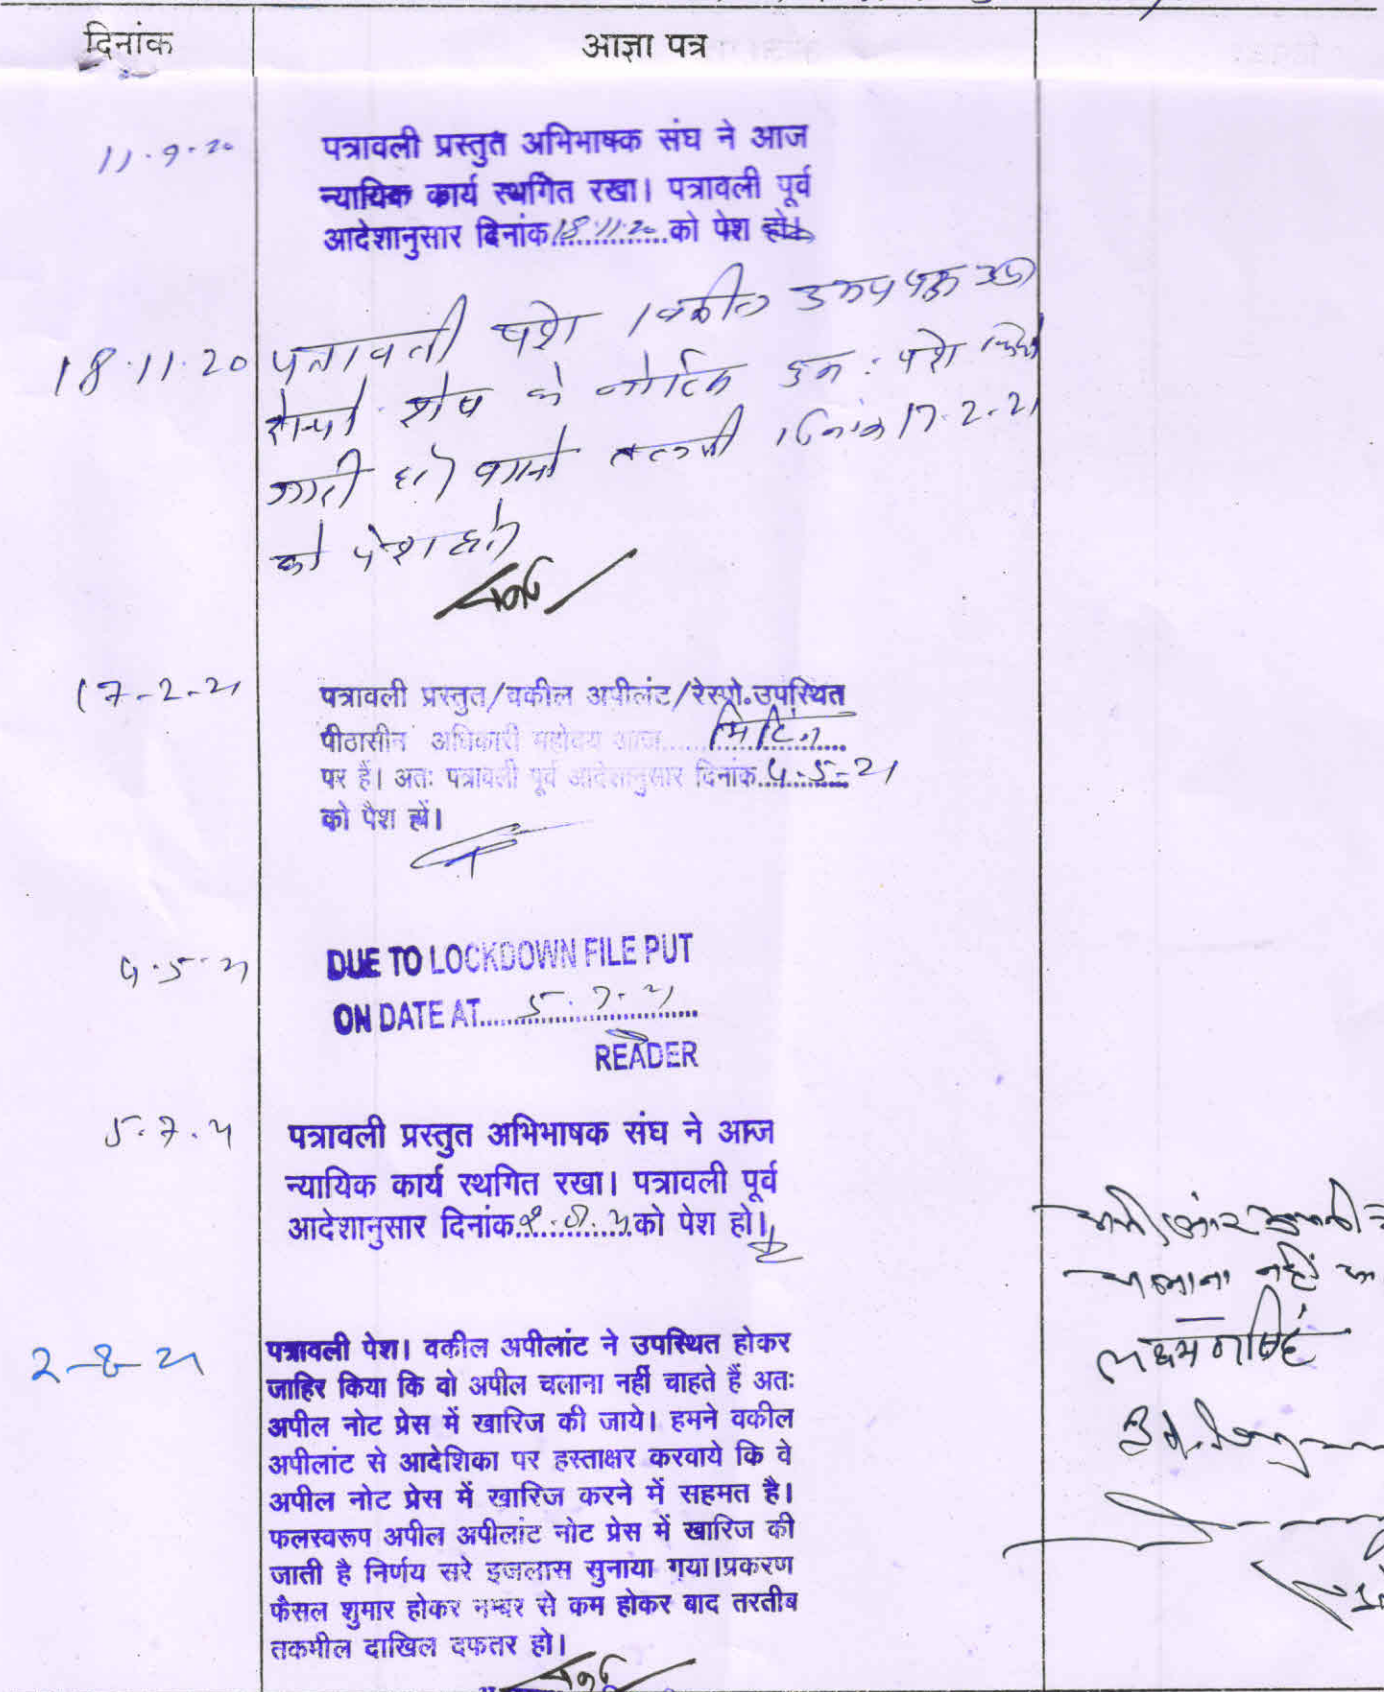 दिनांक
आज्ञा पत्र
11-9-20
पत्रावली प्रस्तुत अभिभाषक संघ ने आज
न्यायिक कार्य स्थगित रखा। पत्रावली पूर्व
आदेशानुसार दिनांक 18.11.20 को पेश हो।
18.11.20
पत्रावली पेश। वकील उभयपक्ष
शेष के नोटिस पुनः पेश
जारी हो वास्ते तलबी दिनांक 17-2-21
को पेश हो
17-2-21
पत्रावली प्रस्तुत/वकील अपीलंट/रेस्पो.उपस्थित
पीठासीन अधिकारी महोदय आज मिटिंग
पर हैं। अतः पत्रावली पूर्व आदेशानुसार दिनांक 4-5-21
को पैश हों।
4-5-21
DUE TO LOCKDOWN FILE PUT
ON DATE AT 5-7-21
READER
5-7-21
पत्रावली प्रस्तुत अभिभाषक संघ ने आज
न्यायिक कार्य स्थगित रखा। पत्रावली पूर्व
आदेशानुसार दिनांक को पेश हो।
2-8-21
पत्रावली पेश। वकील अपीलांट ने उपस्थित होकर
जाहिर किया कि वो अपील चलाना नहीं चाहते हैं अतः
अपील नोट प्रेस में खारिज की जाये। हमने वकील
अपीलांट से आदेशिका पर हस्ताक्षर करवाये कि वे
अपील नोट प्रेस में खारिज करने में सहमत है।
फलस्वरूप अपील अपीलांट नोट प्रेस में खारिज की
जाती है निर्णय सरे इजलास सुनाया गया।प्रकरण
फैसल शुमार होकर नम्बर से कम होकर बाद तरतीब
तकमील दाखिल दफतर हो।
चलाना नहीं
लक्ष्मणसिंह